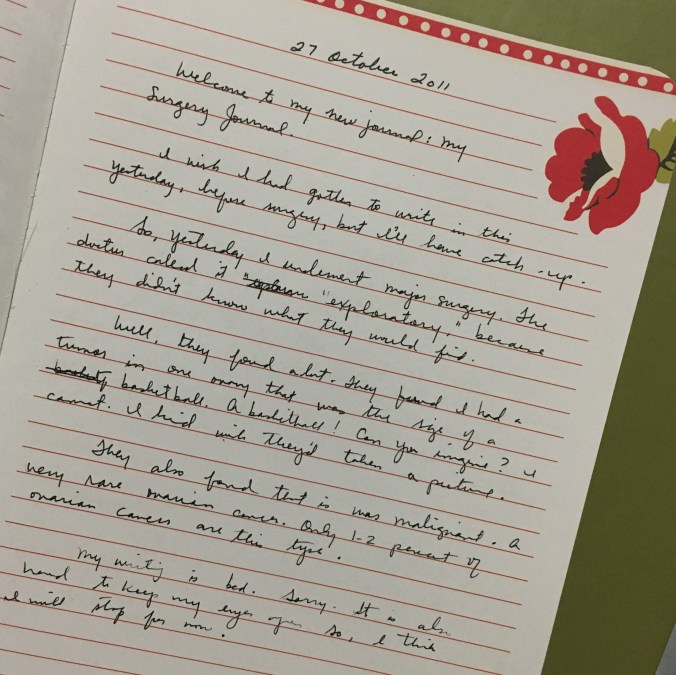 27 October 2011
Welcome to my new journal: my
Surgery Journal
I wish I had gotten to write in this
yesterday, before surgery, but I'll have catch-up.
So, yesterday I underwent major surgery. The
doctors called it "exploratory," because
they didn't know what they would find.
Well, they found a lot. They found I had a
tumor in one ovary that was the size of a
basketball. A basketball! Can you imagine? I
cannot. I kind wish they'd taken a picture.
They also found that is was malignant. A
very rare ovarian cancer. Only 1-2 percent of
ovarian cancers are this type.
My writing is bad. Sorry. It is also
hard to keep my eyes open so, I think
I will stop for now.